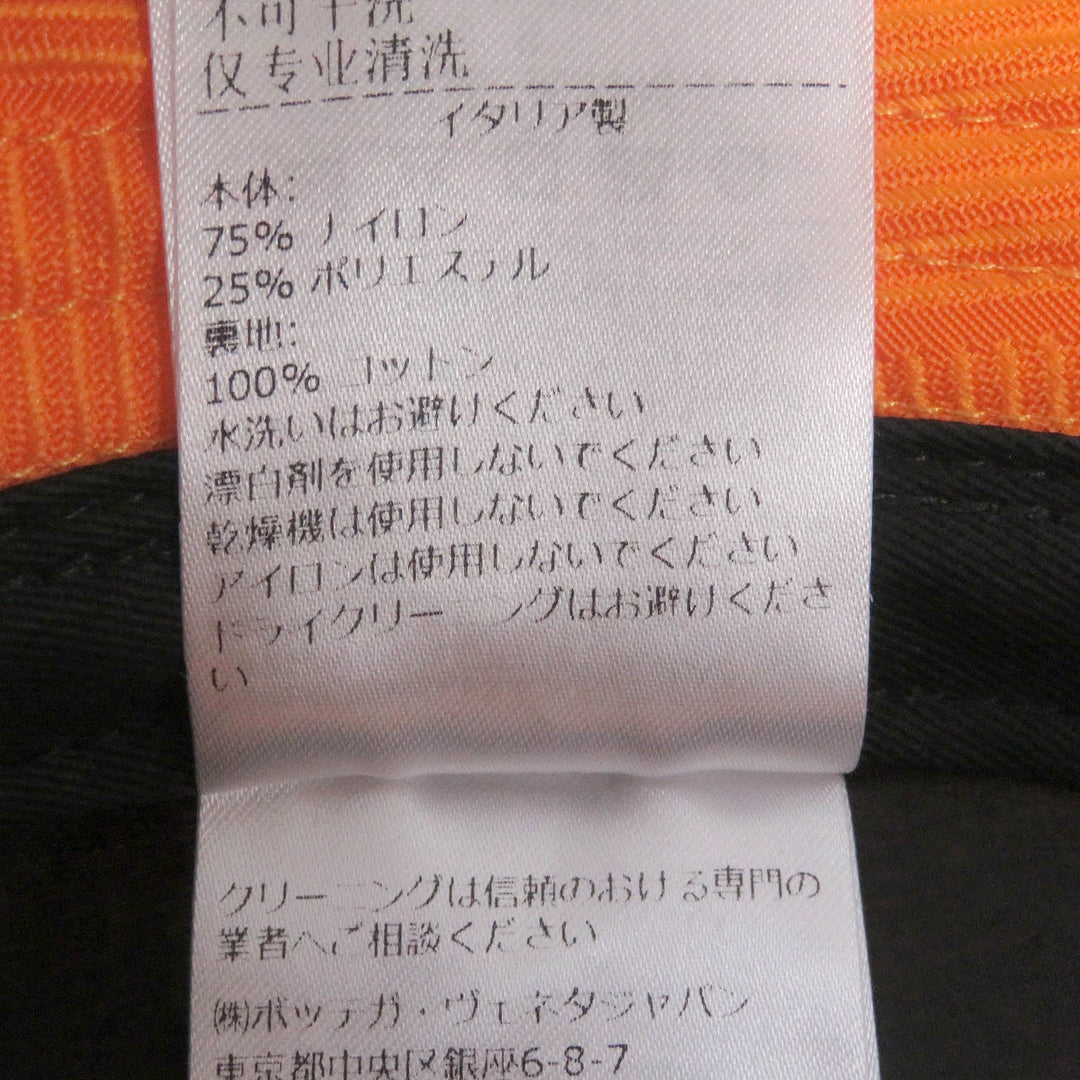 不可干洗
仅专业清洗
イタリア製
本体:
75% ナイロン
25% ポリエステル
裏地:
100% コットン
水洗いはお避けください
漂白剤を使用しないでください
乾燥機は使用しないでください
アイロンは使用しないでください
ドライクリーニングはお避けくださ
い
クリーニングは信頼のおける専門の
業者へご相談ください
㈱ボッテガ・ヴェネタジャパン
東京都中央区銀座6-8-7